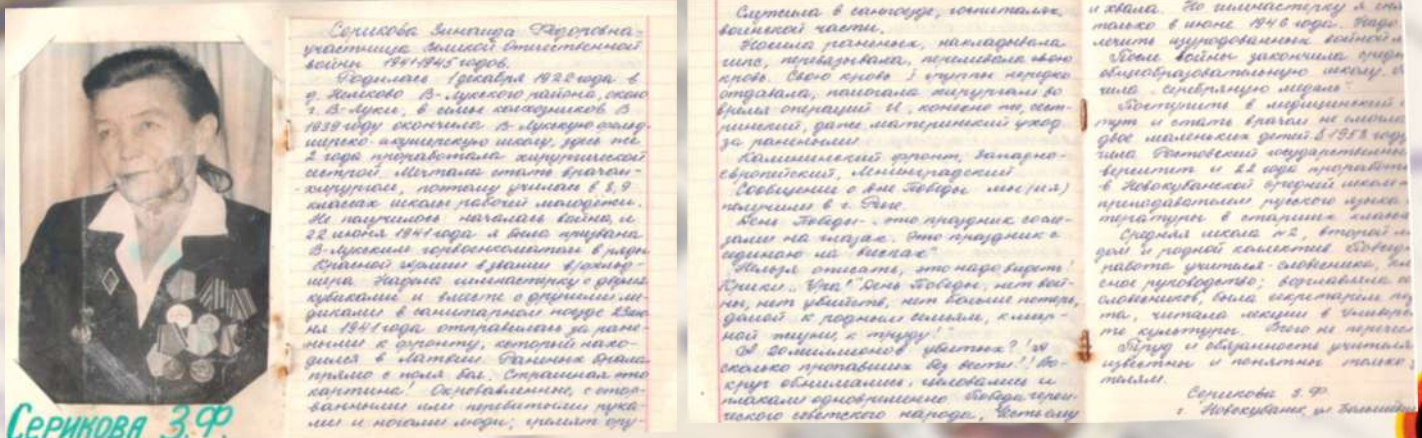 СЕРИКОВА З.Ф.
Серикова Зинаида Фёдоровна -
участница Великой Отечественной
войны 1941-1945 годов.
Родилась 1 декабря 1922 года в
В-Лукского района, около
г. В-Луки, в семье колхозников. В
1939 году окончила В-Лукскую фельд-
шерско-акушерскую школу, здесь же
2 года проработала хирургической
сестрой. Мечтала стать врачом-
-хирургом, поэтому училась в 8, 9
классах школы рабочей молодёжи.
Не получилось: началась война, и
22 июня 1941 года я была призвана
В-Лукским горвоенкоматом в ряды
Красной Армии в звании в/фельд-
шера. Надела гимнастёрку с двумя
кубиками и вместе с другими ме-
диками в санитарном поезде
1941 года отправилась за ране-
ными к фронту, который нахо-
дился в Латвии. Раненых брала
прямо с поля боя. Страшная это
картина! Окровавленные, с отор-
ванными или перебитыми рука-
ми и ногами люди; гремят ору-
Служила в санпоезде, госпиталях,
воинской части.
Носила раненых, накладывала
гипс, перевязывала, переливала свою
кровь. Свою кровь I группы нередко
отдавала, помогала хирургам во
время операций. И, конечно же, сест-
ринский, даже материнский уход
за ранеными.
Калининский фронт, Западно-
европейский, Ленинградский
Сообщение о дне Победы мы (и я)
получили в г. Риге.
День Победы - это праздник со сле-
зами на глазах. Это праздник с
сединою на висках"
Нельзя описать, это надо видеть!
Крики "Ура! День Победы, нет вой-
ны, нет убийств, нет больше потерь,
домой к родным семьям, к мир-
ной жизни, к труду!"
А 20 миллионов убитых?! А
сколько пропавших без вести!! Во-
круг обнимались, целовались и
плакали одновременно. Победа герои-
ческого советского народа, честь ему
и хвала. Но гимнастёрку я
только в июне 1946 года. Надо
лечить изуродованных войной
После войны закончила
общеобразовательную школу.
серебряную медаль.
Поступить в медицинский
и стать врачом не смогла
двое маленьких детей. В 1953 году
Ростовский государственный
и 22 года
в Новокубанской средней школе
преподавателем русского языка
в старших классах
Средняя школа №2, второй
дом и родной коллектив.
работа учителя-словесника,
руководство; возглавляла
словесников, была секретарём
читала лекции в
культуры. Всего не
Труд и обязанность учителя
известны и понятны только
Серикова З.Ф.
г. Новокубанск, ул.